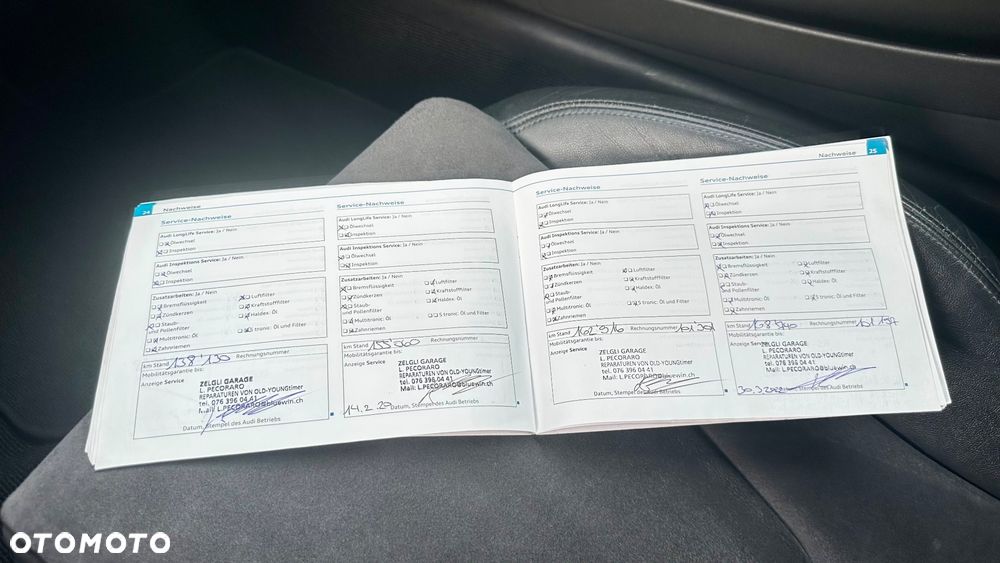 24 Nachweise
Service-Nachweise
Audi LongLife Service: Ja / Nein
Ölwechsel
Inspektion
Audi Inspektions Service: Ja / Nein
Ölwechsel
Inspektion
Zusatzarbeiten: Ja / Nein
Bremsflüssigkeit Luftfilter
Zündkerzen Kraftstofffilter
Staub- Haldex: Öl
und Pollenfilter
Multitronic: Öl S tronic: Öl und Filter
Zahnriemen
km Stand 138'130 Rechnungsnummer
Mobilitätsgarantie bis:
Anzeige Service
ZELGLI GARAGE
L. PECORARO
REPARATUREN VON OLD-YOUNGtimer
tel. 076 396 04 41
Mail: L.PECORARO@bluewin.ch
Datum, Stempel des Audi Betriebs
Service-Nachweise
Audi LongLife Service: Ja / Nein
Ölwechsel
Inspektion
Audi Inspektions Service: Ja / Nein
Ölwechsel
Inspektion
Zusatzarbeiten: Ja / Nein
Bremsflüssigkeit Luftfilter
Zündkerzen Kraftstofffilter
Staub- Haldex: Öl
und Pollenfilter
Multitronic: Öl S tronic: Öl und Filter
Zahnriemen
km Stand 155'560 Rechnungsnummer
Mobilitätsgarantie bis:
Anzeige Service
ZELGLI GARAGE
L. PECORARO
REPARATUREN VON OLD-YOUNGtimer
tel. 076 396 04 41
Mail: L.PECORARO@bluewin.ch
14.2.20 Datum, Stempel des Audi Betriebs
Nachweise 25
Service-Nachweise
Audi LongLife Service: Ja / Nein
Ölwechsel
Inspektion
Audi Inspektions Service: Ja / Nein
Ölwechsel
Inspektion
Zusatzarbeiten: Ja / Nein
Bremsflüssigkeit Luftfilter
Zündkerzen Kraftstofffilter
Staub- Haldex: Öl
und Pollenfilter
Multitronic: Öl S tronic: Öl und Filter
Zahnriemen
km Stand 162'916 Rechnungsnummer
Mobilitätsgarantie bis:
Anzeige Service
ZELGLI GARAGE
L. PECORARO
REPARATUREN VON OLD-YOUNGtimer
tel. 076 396 04 41
Mail: L.PECORARO@bluewin.ch
Datum, Stempel des Audi Betriebs
Service-Nachweise
Audi LongLife Service: Ja / Nein
Ölwechsel
Inspektion
Audi Inspektions Service: Ja / Nein
Ölwechsel
Inspektion
Zusatzarbeiten: Ja / Nein
Bremsflüssigkeit Luftfilter
Zündkerzen Kraftstofffilter
Staub- Haldex: Öl
und Pollenfilter
Multitronic: Öl S tronic: Öl und Filter
Zahnriemen
km Stand Rechnungsnummer
Mobilitätsgarantie bis:
Anzeige Service
ZELGLI GARAGE
L. PECORARO
REPARATUREN VON OLD-YOUNGtimer
tel. 076 396 04 41
Mail: L.PECORARO@bluewin.ch
Datum, Stempel des Audi Betriebs
OTOMOTO